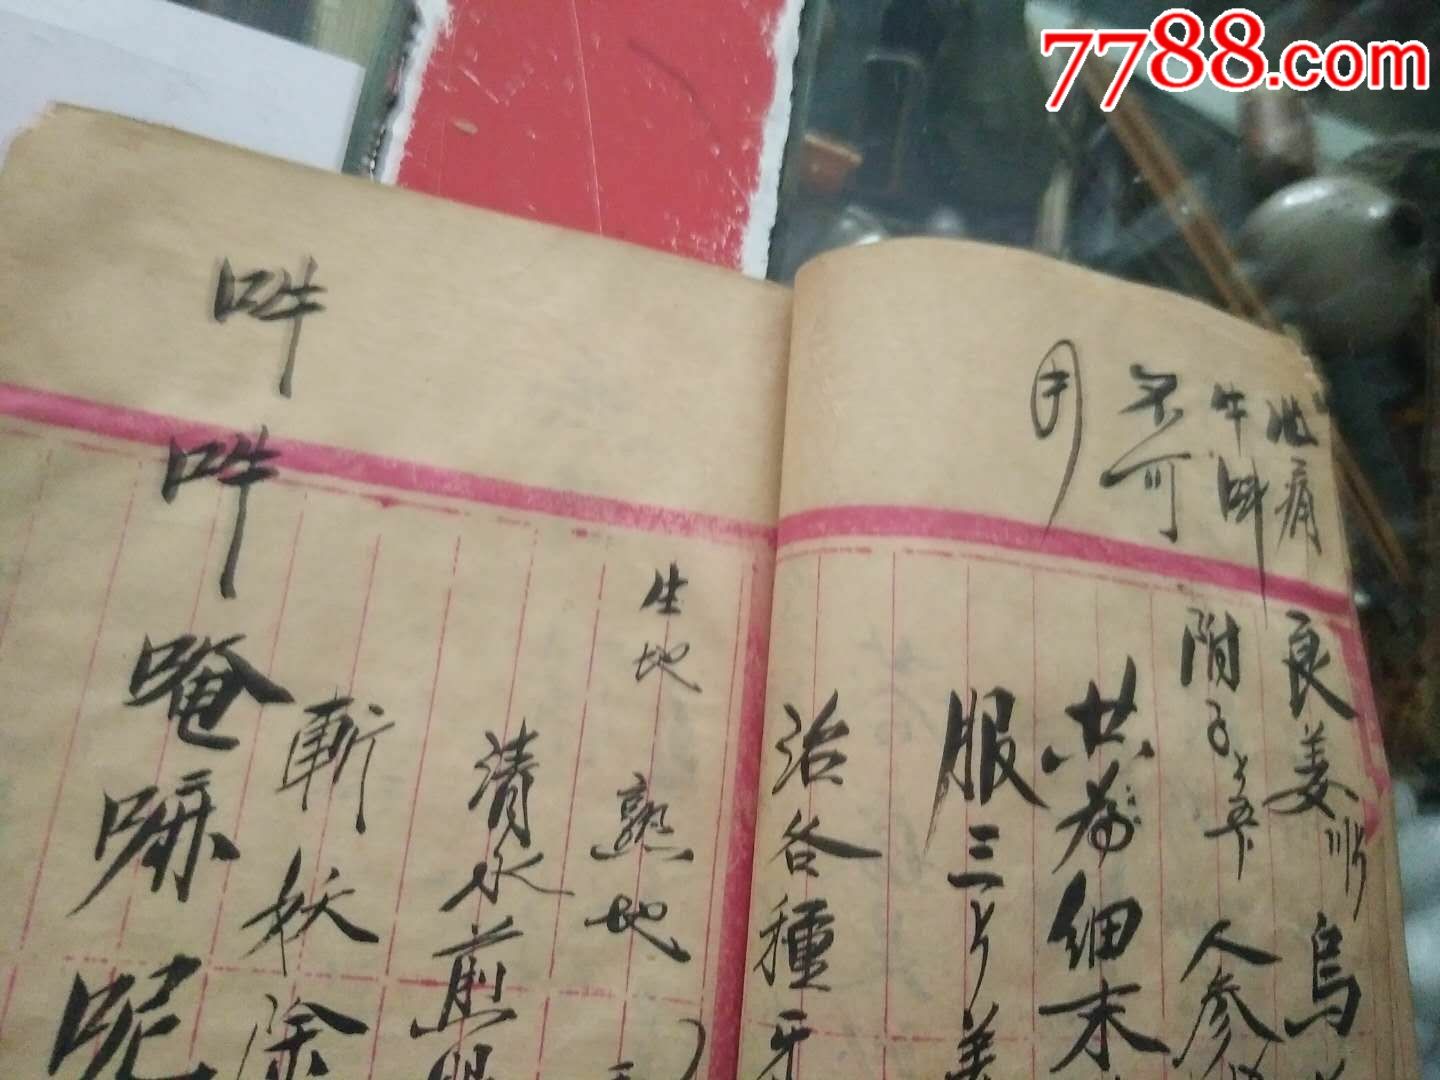 7788.com
痛
不可
用
良姜 烏
附子 人参
共為細末
服三 姜
治各種牙
生地 熟地
清水煎服
斬妖除
吽吽唵嘛呢